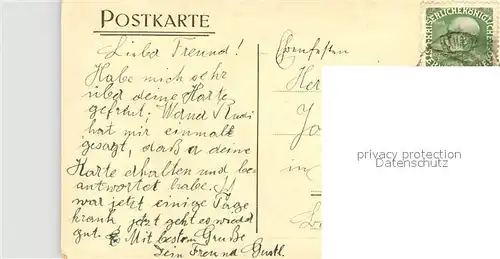 POSTKARTE
Lieber Freund!
Habe mich sehr
über deine Karte
gefreut; Rudi
hat mir einmal
gesagt, daß er deine
Karte erhalten und be-
antwortet habe. Ich
war jetzt einige Tage
krank jetzt geht es wieder
gut. Mit bestem Gruße
Dein Freund Gustl.
in
privacy protection
Datenschutz